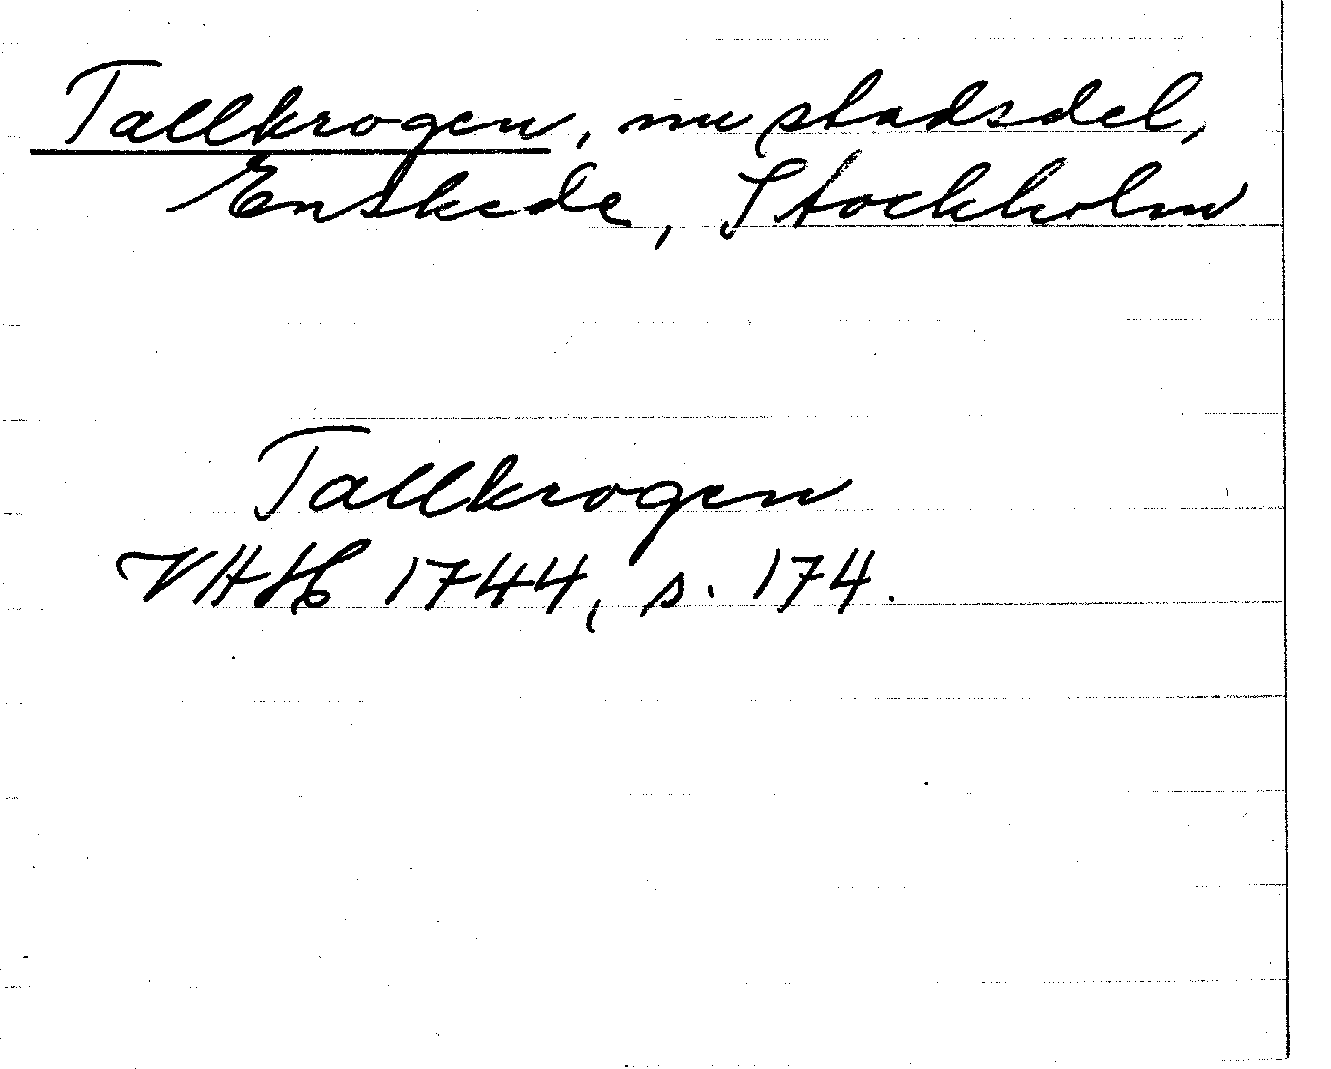 Tallkrogen, nu stadsdel,
Enskede, Stockholm
Tallkrogen
VHH 1744, s. 174.